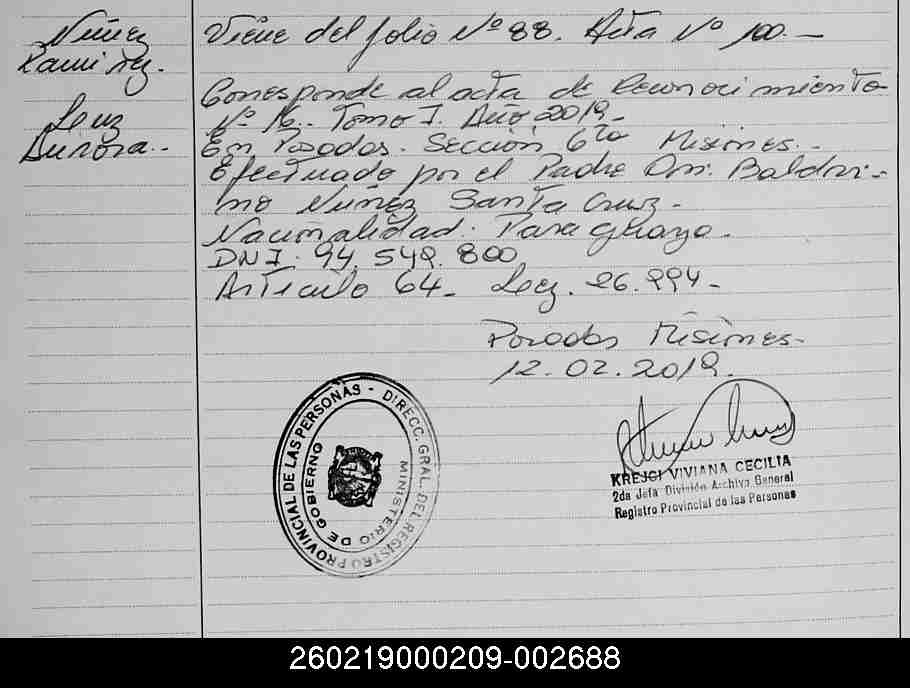 Núñez
Ramirez.
Luz
Aurora.-
Viene del folio Nº 88. Acta Nº 100.-
Corresponde al acta de Reconocimiento
Nº 16.- Tomo I. Año 2019-
En Posadas. Sección 6ta Misiones.-
Efectuado por el Padre Don: Baldovi-
no Núñez Santa Cruz-
Nacionalidad: Paraguaya.
DNI: 94.549.800
Artículo 64- Ley. 26.994-
Posadas Misiones-
12.02.2019.
DIRECC. GRAL. DEL REGISTRO PROVINCIAL DE LAS PERSONAS -
MINISTERIO DE GOBIERNO
KREJCI VIVIANA CECILIA
2da Jefa División Archivo General
Registro Provincial de las Personas
260219000209-002688